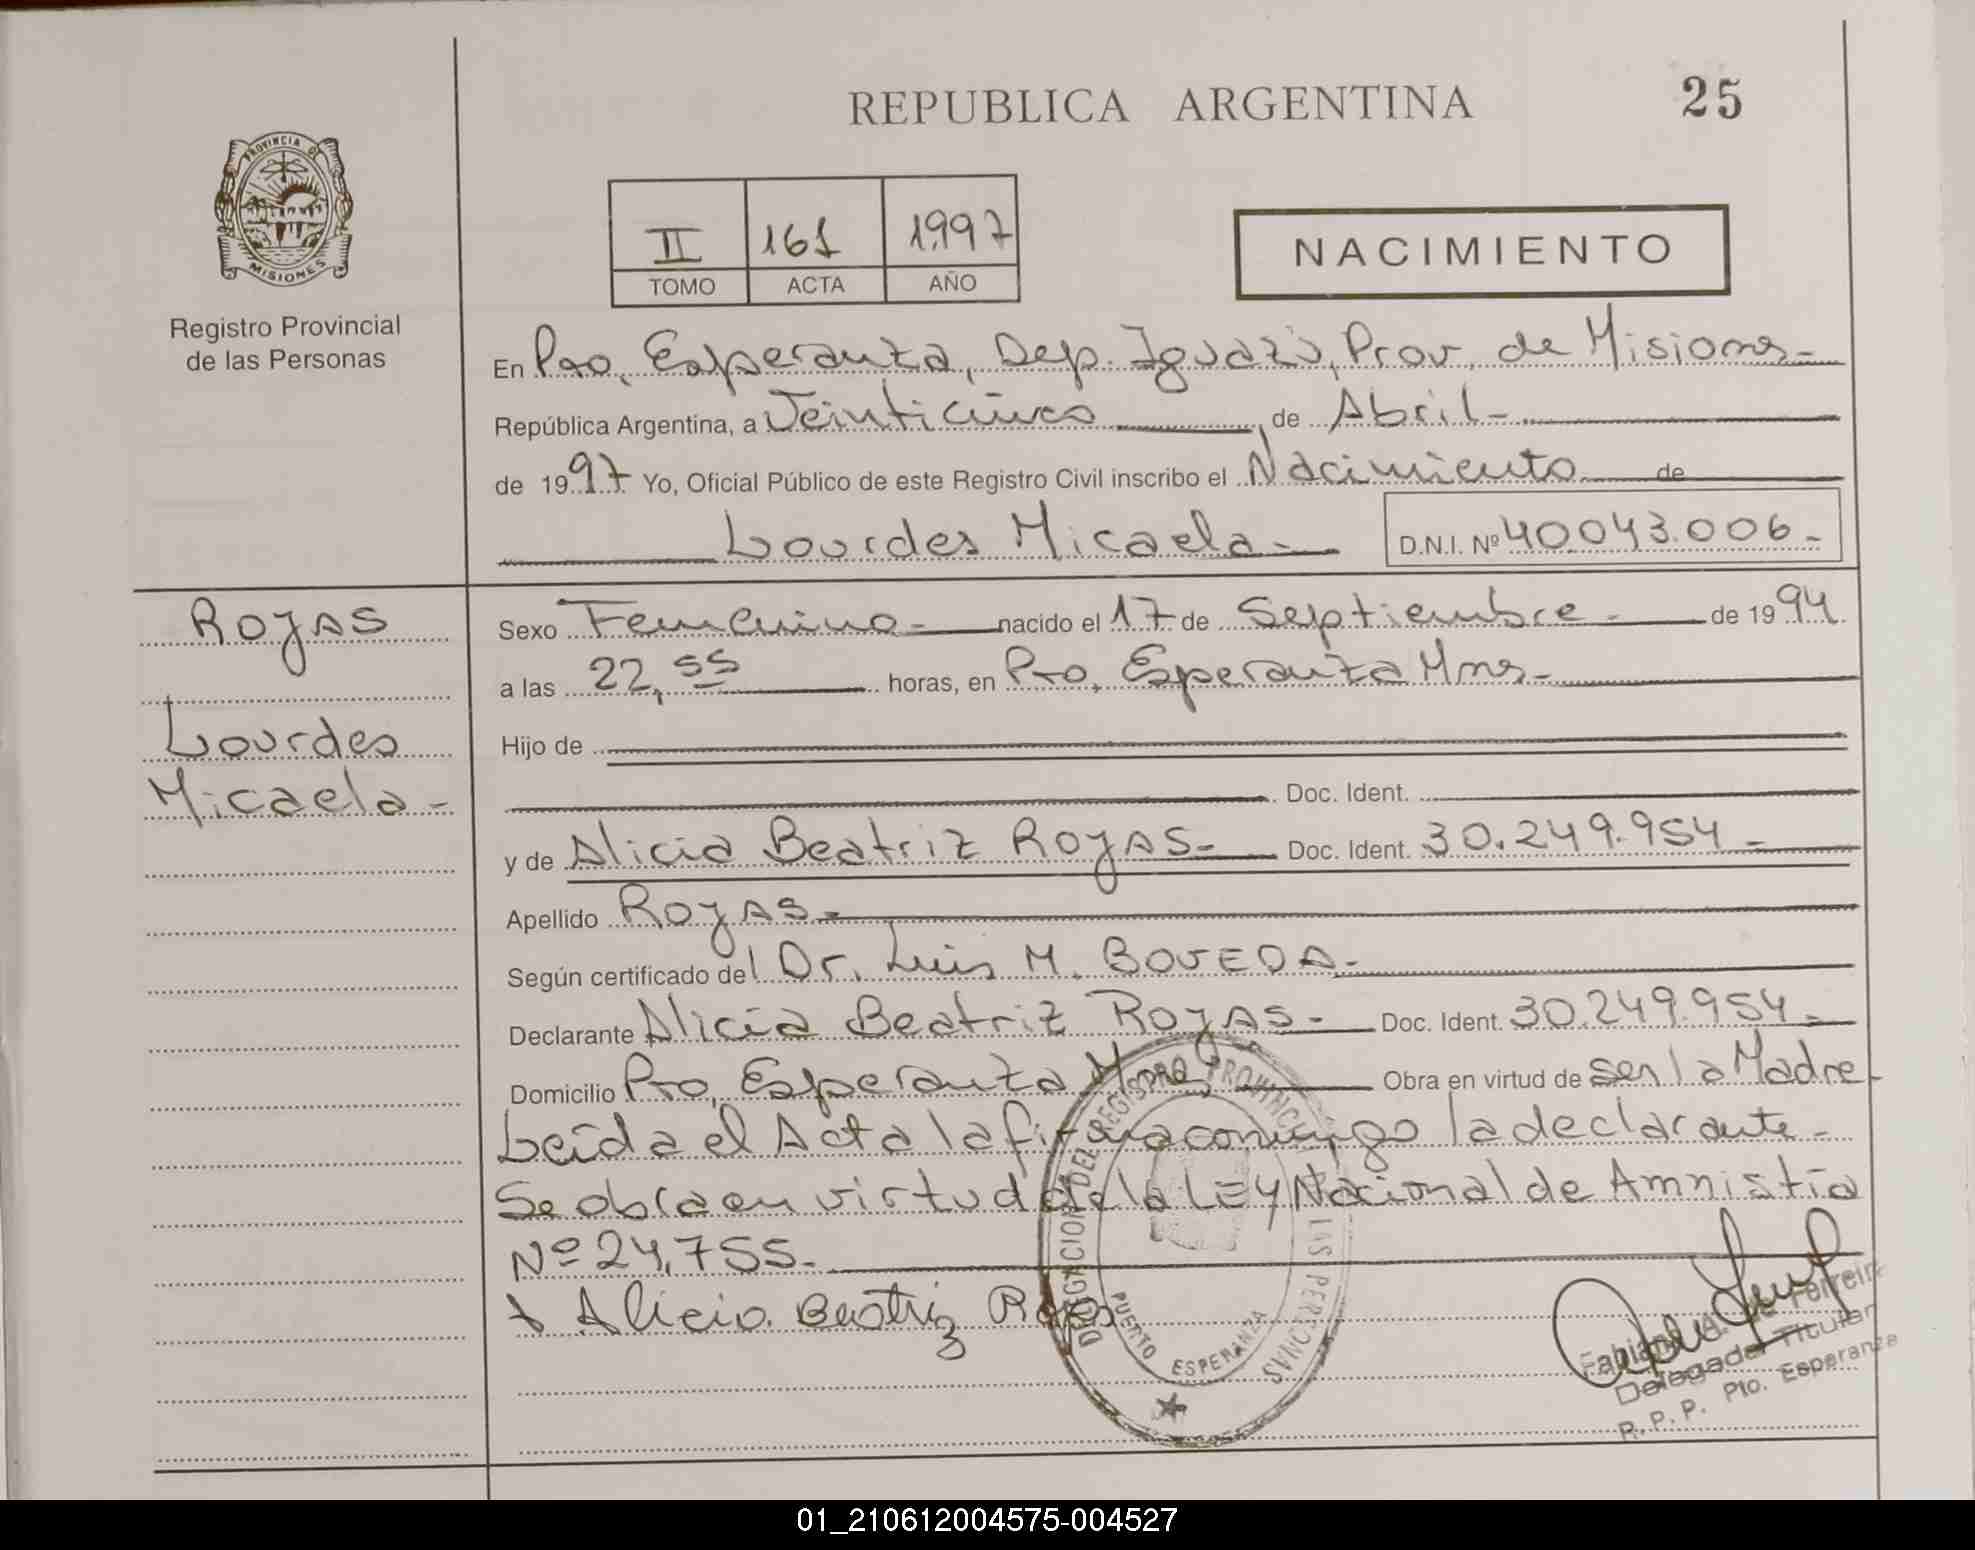 REPUBLICA ARGENTINA
25
PROVINCIA DE
MISIONES
Registro Provincial
de las Personas
II 161 1997
TOMO ACTA AÑO
NACIMIENTO
En Pto, Esperanza, Dep. Iguazú, Prov, de Misiones-
República Argentina, a Veinticinco, de Abril-
de 1997 Yo, Oficial Público de este Registro Civil inscribo el Nacimiento de
Lourdes Micaela- D.N.I. Nº 40.043.006-
ROJAS
Lourdes
Micaela-
Sexo Femenino- nacido el 17 de Septiembre- de 1994
a las 22,55 horas, en Pto, Esperanza Mnes-
Hijo de
Doc. Ident.
y de Alicia Beatriz ROJAS- Doc. Ident. 30.249.954-
Apellido ROJAS-
Según certificado del Dr. Luis M. BOVEDA-
Declarante Alicia Beatriz ROJAS- Doc. Ident. 30.249.954-
Domicilio Pto, Esperanza Mnes, Obra en virtud de ser la Madre-
Leída el Acta la firma conmigo la declarante-
Se obra en virtud de la LEY Nacional de Amnistía
Nº 24,755-
x Alicia Beatriz Rojas
DELEGACION DEL REGISTRO PROVINCIAL LAS PERSONAS
PUERTO ESPERANZA
Delegada Titular
R.P.P. Pto. Esperanza
01_210612004575-004527